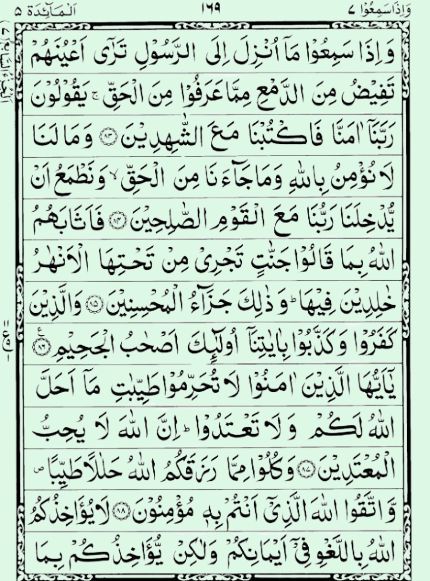 وَاِذَا سَمِعُوْا ۷ ۱۶۹ اَلْمَآئِدَة ۵
وَاِذَا سَمِعُوْا مَاۤ اُنْزِلَ اِلَى الرَّسُوْلِ تَرٰۤى اَعْيُنَهُمْ
تَفِيْضُ مِنَ الدَّمْعِ مِمَّا عَرَفُوْا مِنَ الْحَقِّ ۚ يَقُوْلُوْنَ
رَبَّنَاۤ اٰمَنَّا فَاكْتُبْنَا مَعَ الشّٰهِدِيْنَ ﴿۸۳﴾ وَمَا لَنَا
لَا نُؤْمِنُ بِاللّٰهِ وَمَا جَآءَنَا مِنَ الْحَقِّ ۙ وَنَطْمَعُ اَنْ
يُّدْخِلَنَا رَبُّنَا مَعَ الْقَوْمِ الصّٰلِحِيْنَ ﴿۸۴﴾ فَاَثَابَهُمُ
اللّٰهُ بِمَا قَالُوْا جَنّٰتٍ تَجْرِيْ مِنْ تَحْتِهَا الْاَنْهٰرُ
خٰلِدِيْنَ فِيْهَا ؕ وَذٰلِكَ جَزَآءُ الْمُحْسِنِيْنَ ﴿۸۵﴾ وَالَّذِيْنَ
كَفَرُوْا وَكَذَّبُوْا بِاٰيٰتِنَاۤ اُولٰٓئِكَ اَصْحٰبُ الْجَحِيْمِ ﴿۸۶﴾
يٰۤاَيُّهَا الَّذِيْنَ اٰمَنُوْا لَا تُحَرِّمُوْا طَيِّبٰتِ مَاۤ اَحَلَّ
اللّٰهُ لَكُمْ وَلَا تَعْتَدُوْا ؕ اِنَّ اللّٰهَ لَا يُحِبُّ
الْمُعْتَدِيْنَ ﴿۸۷﴾ وَكُلُوْا مِمَّا رَزَقَكُمُ اللّٰهُ حَلٰلًا طَيِّبًا ۪
وَّاتَّقُوا اللّٰهَ الَّذِيْۤ اَنْتُمْ بِهٖ مُؤْمِنُوْنَ ﴿۸۸﴾ لَا يُؤَاخِذُكُمُ
اللّٰهُ بِاللَّغْوِ فِيْۤ اَيْمَانِكُمْ وَلٰكِنْ يُّؤَاخِذُكُمْ بِمَا